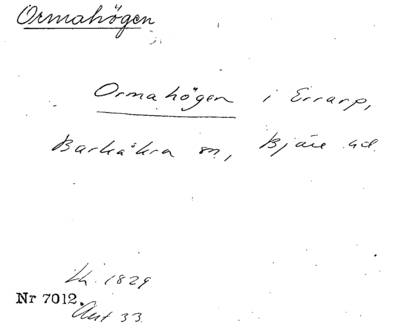 Ormahögen
Ormahögen i Errarp,
Barkåkra sn, Bjäre hd.
Lh. 1829
Nr 7012.
Aut 33.